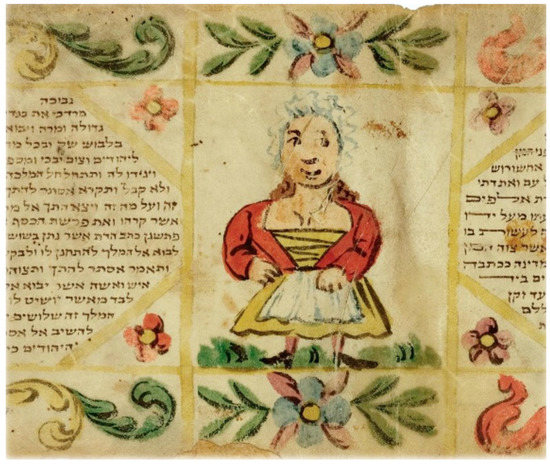 פני המן
אחשורוש
עם ואתדתי
אלפים
מעל ידו
לעשות בו
אשר צוה המן
מדינה ככתבה
ביד
עד זקן
ללם
נבוכה
מרדכי את בגד
גדולה ומרה ויבוא
בלבוש שק ובכל מד
ליהודים וצום ובכי ומספ
ויגידו לה ותתחלחל המלכה
ולא קבל ותקרא אסתר להתך
זה ועל מה זה ויצא התך אל מר
אשר קרהו ואת פרשת הכסף
פתשגן כתב הדת אשר נתן בשוש
לבוא אל המלך להתחנן לו ולבק
ותאמר אסתר להתך ותצוה
איש ואשה אשר יבוא א
לבד מאשר יושיט לו
המלך זה שלושים י
להשיב אל אס
היהודים כי